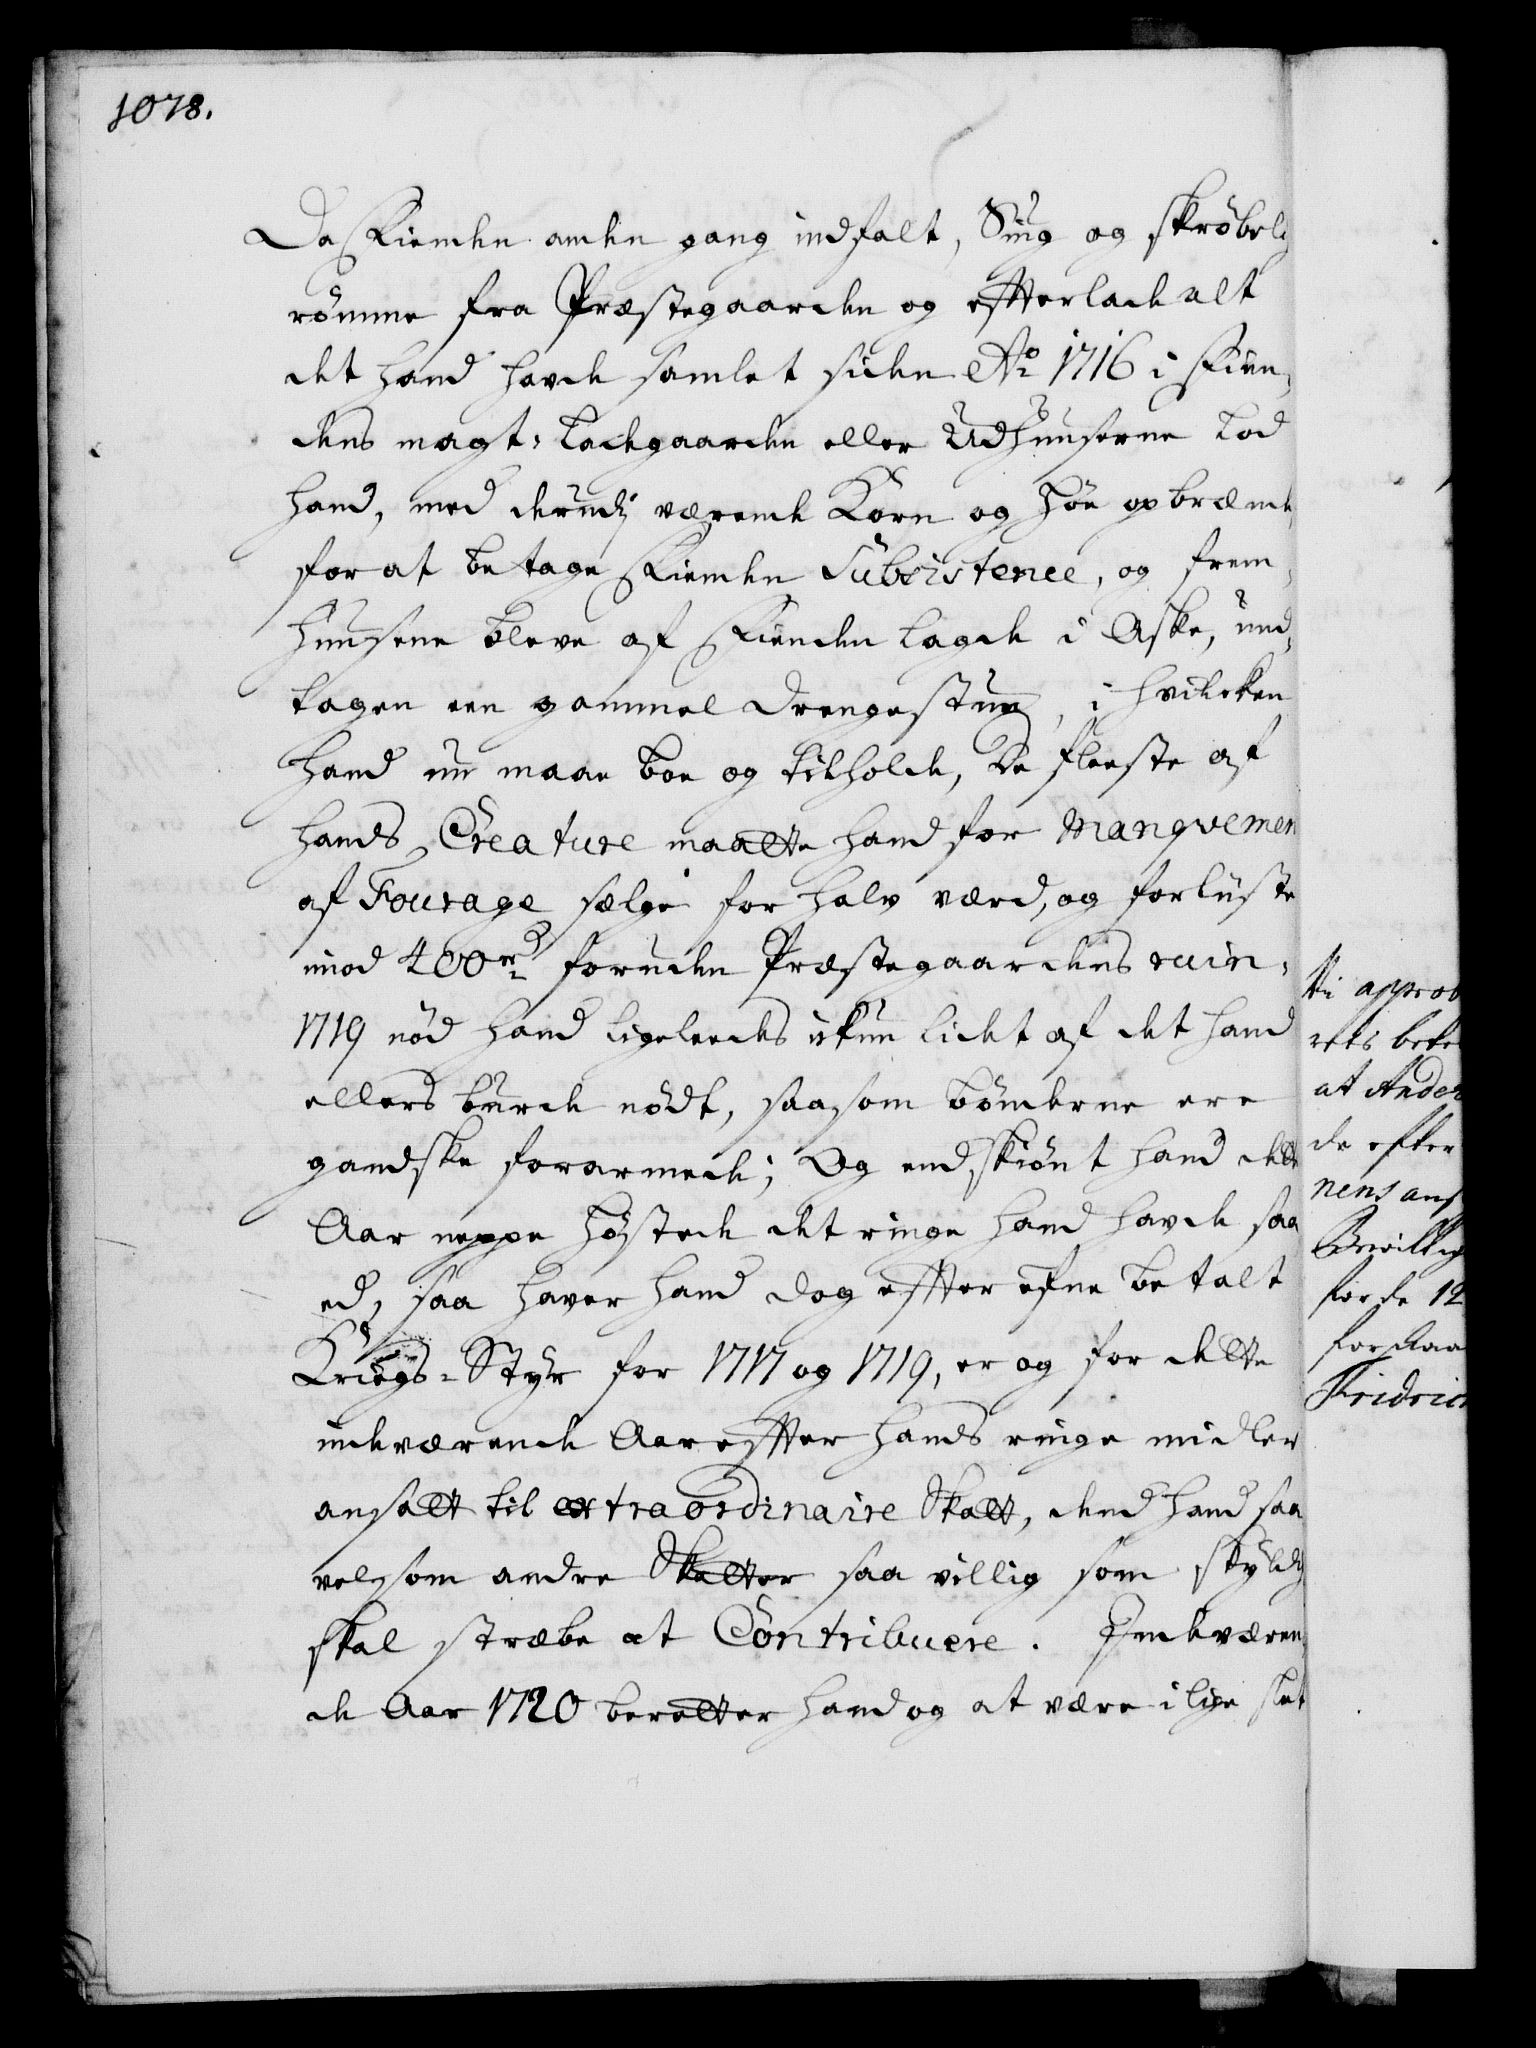 1078.
Da Fienden anden gang indfalt, Siug og skrøbelig
rømme fra Præstegaarden og efterlade alt
det hand havde samlet siden Aō 1716 i Fien,
dens magt; Ladegaarden eller Udhuuserne Lod
hand, med derudj værende Korn og Høe opbrænde,
for at betage Fienden Subsistence, og frem,
huusene bleve af Fienden lagde i Aske, und,
tagen een gammel drengestue, i hvilcken
hand nu maae boe og tilholde, De fleeste af
hands Creature maatte hand for Manqvemen
af Fourage sælge for halv værd, og forliiste
imod 400 rd foruden Præstegaardens ruin,
1719 nød hand ligeleedes ikun lidet af det hand
ellers burde nødt, saasom bønderne ere
gandske forarmede; Og endskiønt hand dette
Aar neppe høstede det ringe hand havde saa
ed, saa haver hand dog efter efne betalt
Kriegs-Styr for 1717 og 1719, er og for dette
indeværende Aar efter hands ringe midler
ansatt til extraordinaire Skatt, dend hand saa
velsom andre Skatter saa villig som skyldig
skal stræbe at Contribuere. Indeværen,
de Aar 1720 beretter hand og at være i lige slet
Vi approb
at Ander
de efter
nens ans
Bevillig
for de 12
Fridric